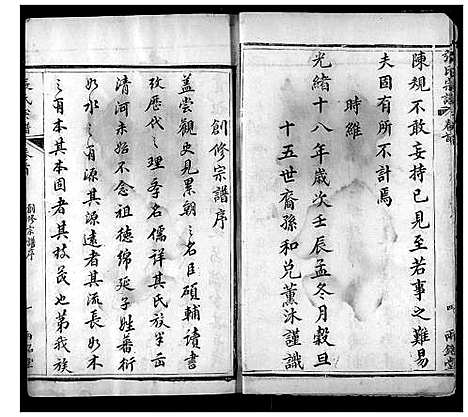 陳規不敢妄持已見至若事之難易
夫固有所不計焉
時維
光緒十八年歲次壬辰孟冬月穀旦
十五世裔孫和兌薰沐謹識
創修宗譜序
蓋嘗觀史見累朝之名臣碩輔讀書
攷歷代之理學名儒詳其氏族半占
清河未始不念祖德綿延子姓蕃衍
如水之有源其源遠者其流長如木
之有本其本固者其枝茂也第我族
創修宗譜序